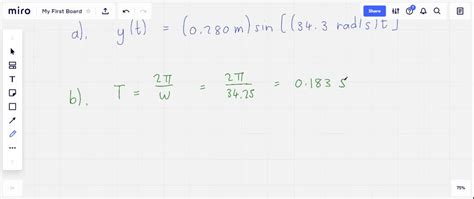 miro My First Board Share
a). y(t) = (0.280m) sin [(34.3 rad/s)t]
b). T = 2π/W = 2π/34.25 = 0.183 s
75%